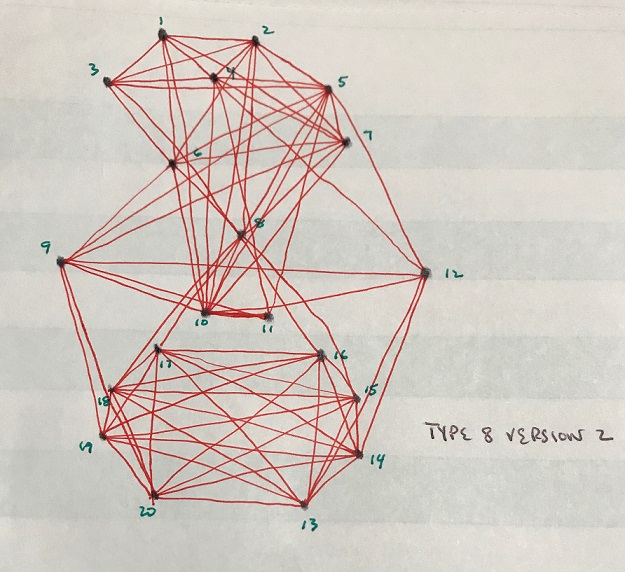 1
2
3
4
5
7
6
8
9
12
10
11
17
16
18
15
19
14
20
13
TYPE 8 VERSION 2